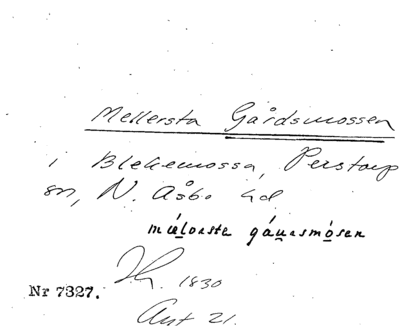 Mellersta Gårdsmossen
i Blekemossa, Perstorp
sn, N. Åsbo hd
mǽlorsta gáu̱rsmo̱sen
1830
Nr 7327.
Ant 21.